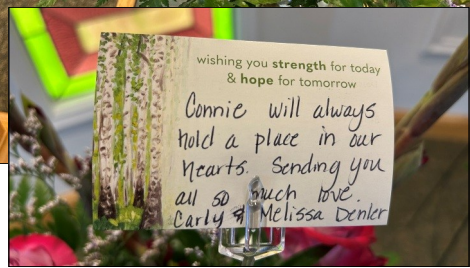 wishing you strength for today
& hope for tomorrow
Connie will always
hold a place in our
hearts. Sending you
all so much love.
Carly & Melissa Denler